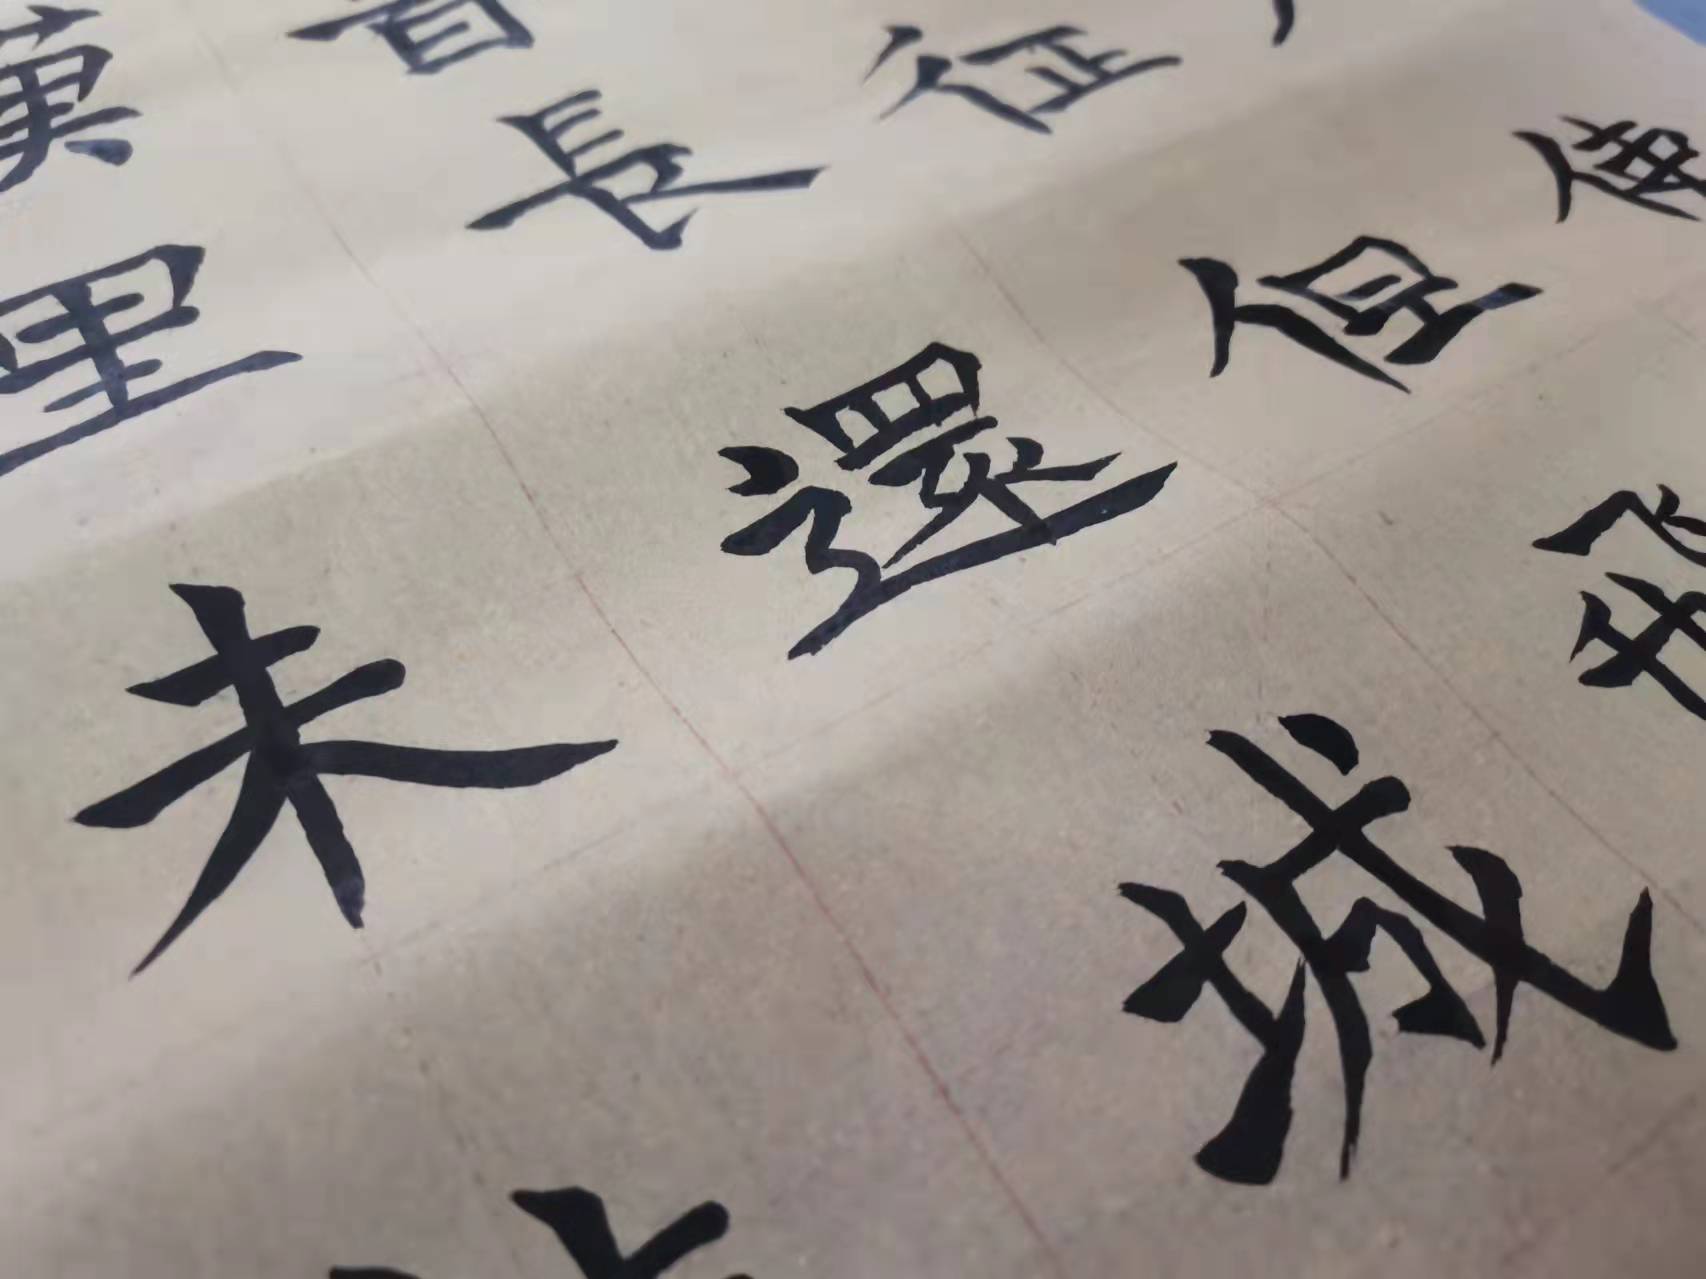 漢
里長征
未還但使
城